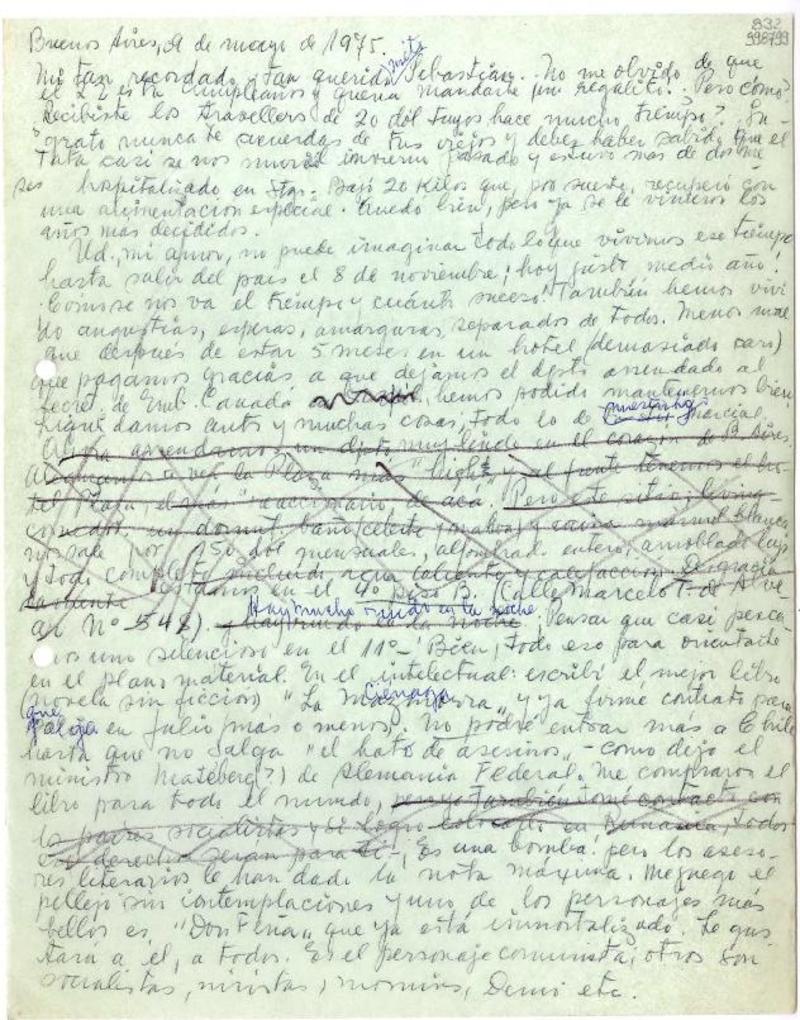 332
998799
Buenos Aires, 9 de mayo de 1975.
Mi tan recordado, tan querido Sebastián. No me olvido de que
el 22 es tu cumpleaños y quería mandarte un regalito. Pero cómo?
Recibiste los travellers de 20 dól tuyos hace mucho tiempo? In-
grato nunca te acuerdas de tus viejos y debes haber sabido que el
Tata casi se nos murió el invierno pasado y estuvo más de dos me-
ses hospitalizado en Stgo. Bajó 20 kilos que, por suerte, recuperó con
una alimentación especial. Quedó bien, pero ya se le vinieron los
años más decididos.
Ud., mi amor, no puede imaginar todo lo que vivimos ese tiempo
hasta salir del país el 8 de noviembre; hoy justo medio año!
Cómo se nos va el tiempo y cuánto suceso! También hemos vivi
do angustias, esperas, amarguras, separados de todos. Menos mal
que después de estar 5 meses en un hotel (demasiado caro)
que pagamos gracias a que dejamos el dpto arrendado al
Secret. de Emb. Canadá hemos podido mantenernos bien
Liquidamos auto y muchas cosas, todo lo de
Ahora arrendamos un dpto muy lindo en el corazón de B. Aires.
a ver la Plaza más "high" y al frente tenemos el ho-
tel Plaza, el más reaccionario, de acá. Pero este sitio; living-
comedor, un dormit. baño (celeste y malva) y cocina mármol blanca
nos sale por 150 dól mensuales, alfombrado entero, amoblado lujo
y todo completo incluido agua caliente y calefacción. Desgracia
damente estamos en el 4º piso B. (Calle Marcelo T. de Alve-
ar Nº 542). Hay mucho ruido en la noche. Pensar que casi pesca-
mos uno silencioso en el 11º. Bien, todo eso para orientarte
en el plano material. En el intelectual: escribí el mejor libro
(novela sin ficción) "La Ciénaga" y ya firmé contrato para
que salga en julio más o menos. No podré entrar más a Chile
hasta que no salga "el hato de asesinos" - como dijo el
ministro de Alemania Federal. Me compraron el
libro para todo el mundo, pero yo también tomé contacto con
los países socialistas y si logro colocarlo en Rumania, todos
esos derechos serán para ti. Es una bomba! pero los aseso-
res literarios le han dado la nota máxima. Me juego el
pellejo sin contemplaciones y uno de los personajes más
bellos es "Don Feña" que ya está inmortalizado. Le gus
tará a él, a todos. Es el personaje comunista; otros son
socialistas, miristas, momios, Demo etc.